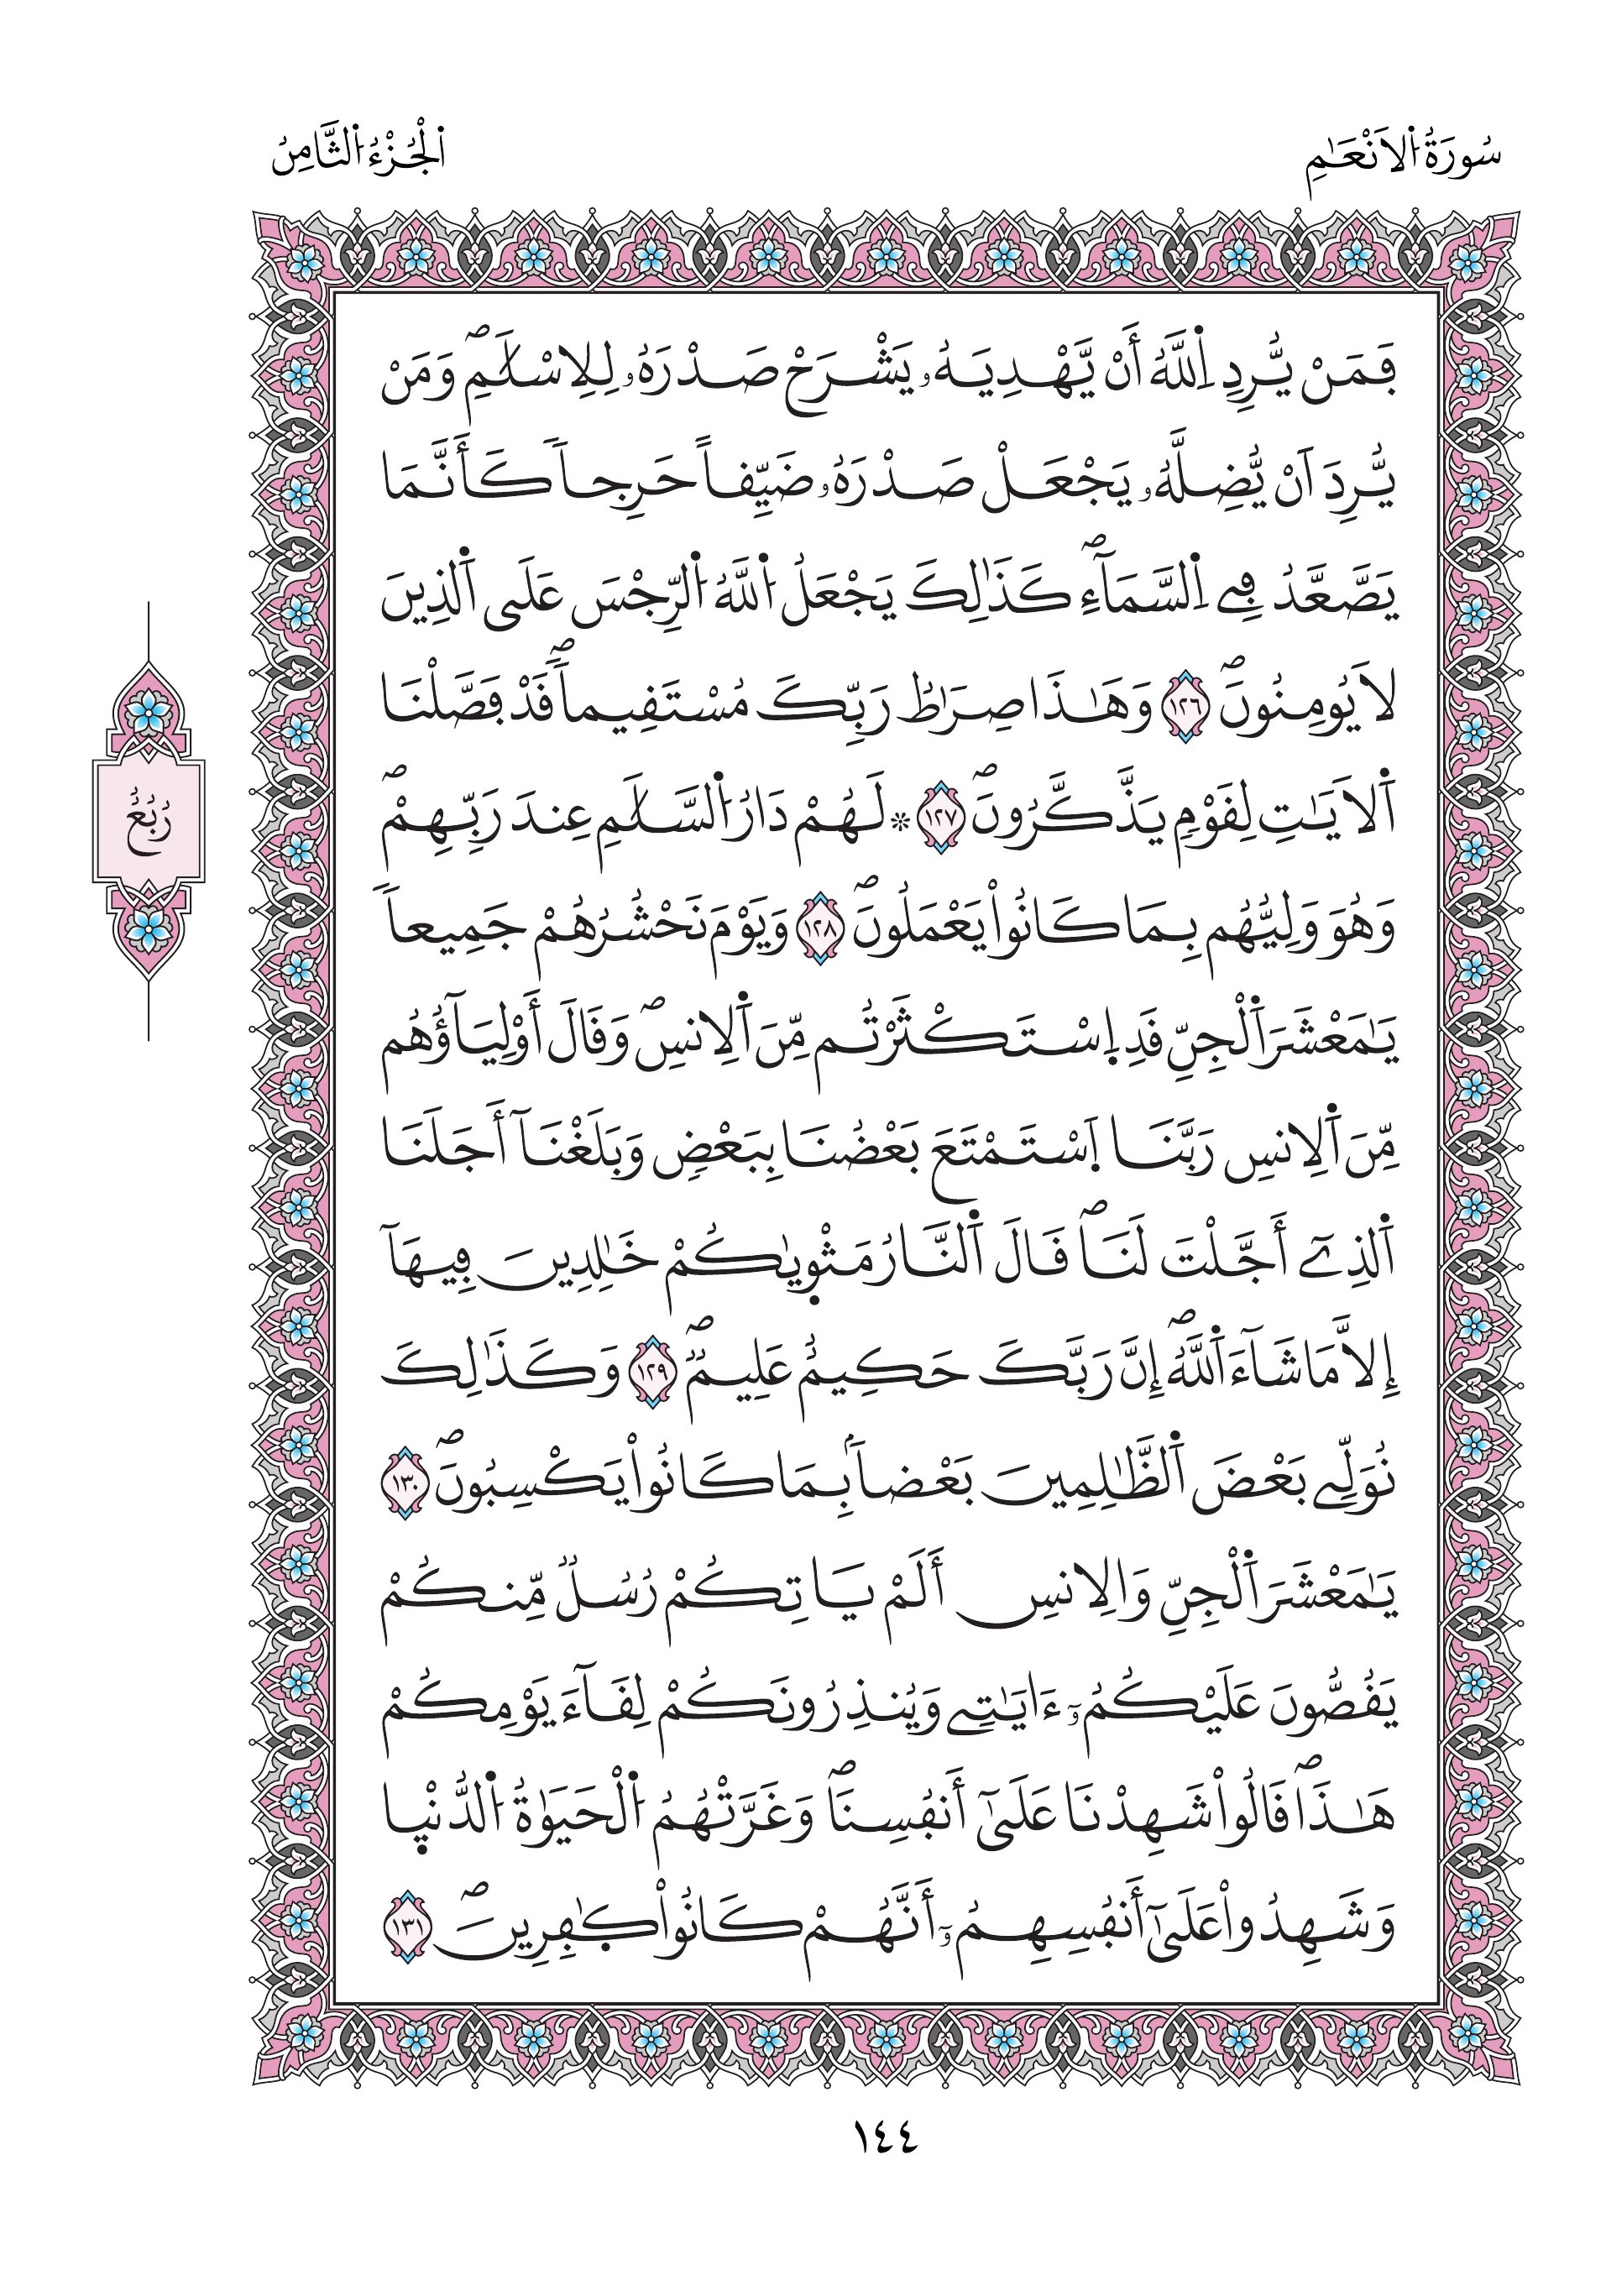 سُورَةُ اُ۬لَانْعَٰمِ
اَ۬لْجُزْءُ اُ۬لثَّامِنُ
فَمَنْ يُّرِدِ اِ۬للَّهُ أَنْ يَّهْدِيَهُۥ يَشْرَحْ صَدْرَهُۥ لِلِاسْلَٰمِۖ وَمَنْ
يُّرِدَ اَنْ يُّضِلَّهُۥ يَجْعَلْ صَدْرَهُۥ ضَيِّقاً حَرِجاٗ كَأَنَّمَا
يَصَّعَّدُ فِے اِ۬لسَّمَآءِۖ كَذَٰلِكَ يَجْعَلُ اُ۬للَّهُ اُ۬لرِّجْسَ عَلَى اَ۬لذِينَ
لَا يُومِنُونَۖ ١٢٦ وَهَٰذَا صِرَٰطُ رَبِّكَ مُسْتَقِيماٗۖ قَدْ فَصَّلْنَا
اَ۬لَايَٰتِ لِقَوْمٖ يَذَّكَّرُونَۖ ١٢٧ ۞ لَهُمْ دَارُ اُ۬لسَّلَٰمِ عِندَ رَبِّهِمْۖ
وَهُوَ وَلِيُّهُم بِمَا كَانُواْ يَعْمَلُونَۖ ١٢٨ وَيَوْمَ نَحْشُرُهُمْ جَمِيعاٗ
يَٰمَعْشَرَ اَ۬لْجِنِّ قَدِ اِ۪سْتَكْثَرْتُم مِّنَ اَ۬لِانسِۖ وَقَالَ أَوْلِيَآؤُهُم
مِّنَ اَ۬لِانسِ رَبَّنَا اَ۪سْتَمْتَعَ بَعْضُنَا بِبَعْضٖ وَبَلَغْنَآ أَجَلَنَا
اَ۬لذِےٓ أَجَّلْتَ لَنَاۖ قَالَ اَ۬لنَّارُ مَثْو۪يٰكُمْ خَٰلِدِينَ فِيهَآ
إِلَّا مَا شَآءَ اَ۬للَّهُۖ إِنَّ رَبَّكَ حَكِيمٌ عَلِيمٞۖ ١٢٩ وَكَذَٰلِكَ
نُوَلِّے بَعْضَ اَ۬لظَّٰلِمِينَ بَعْضاَۢ بِمَا كَانُواْ يَكْسِبُونَۖ ١٣٠
يَٰمَعْشَرَ اَ۬لْجِنِّ وَالِانسِ أَلَمْ يَاتِكُمْ رُسُلٞ مِّنكُمْ
يَقُصُّونَ عَلَيْكُمُۥٓ ءَايَٰتِے وَيُنذِرُونَكُمْ لِقَآءَ يَوْمِكُمْ
هَٰذَاۖ قَالُواْ شَهِدْنَا عَلَىٰٓ أَنفُسِنَاۖ وَغَرَّتْهُمُ اُ۬لْحَيَوٰةُ اُ۬لدُّنْي۪ا
وَشَهِدُواْ عَلَىٰٓ أَنفُسِهِمُۥٓ أَنَّهُمْ كَانُواْ كٰ۪فِرِينَۖ ١٣١
رُبُعُ
١٤٤